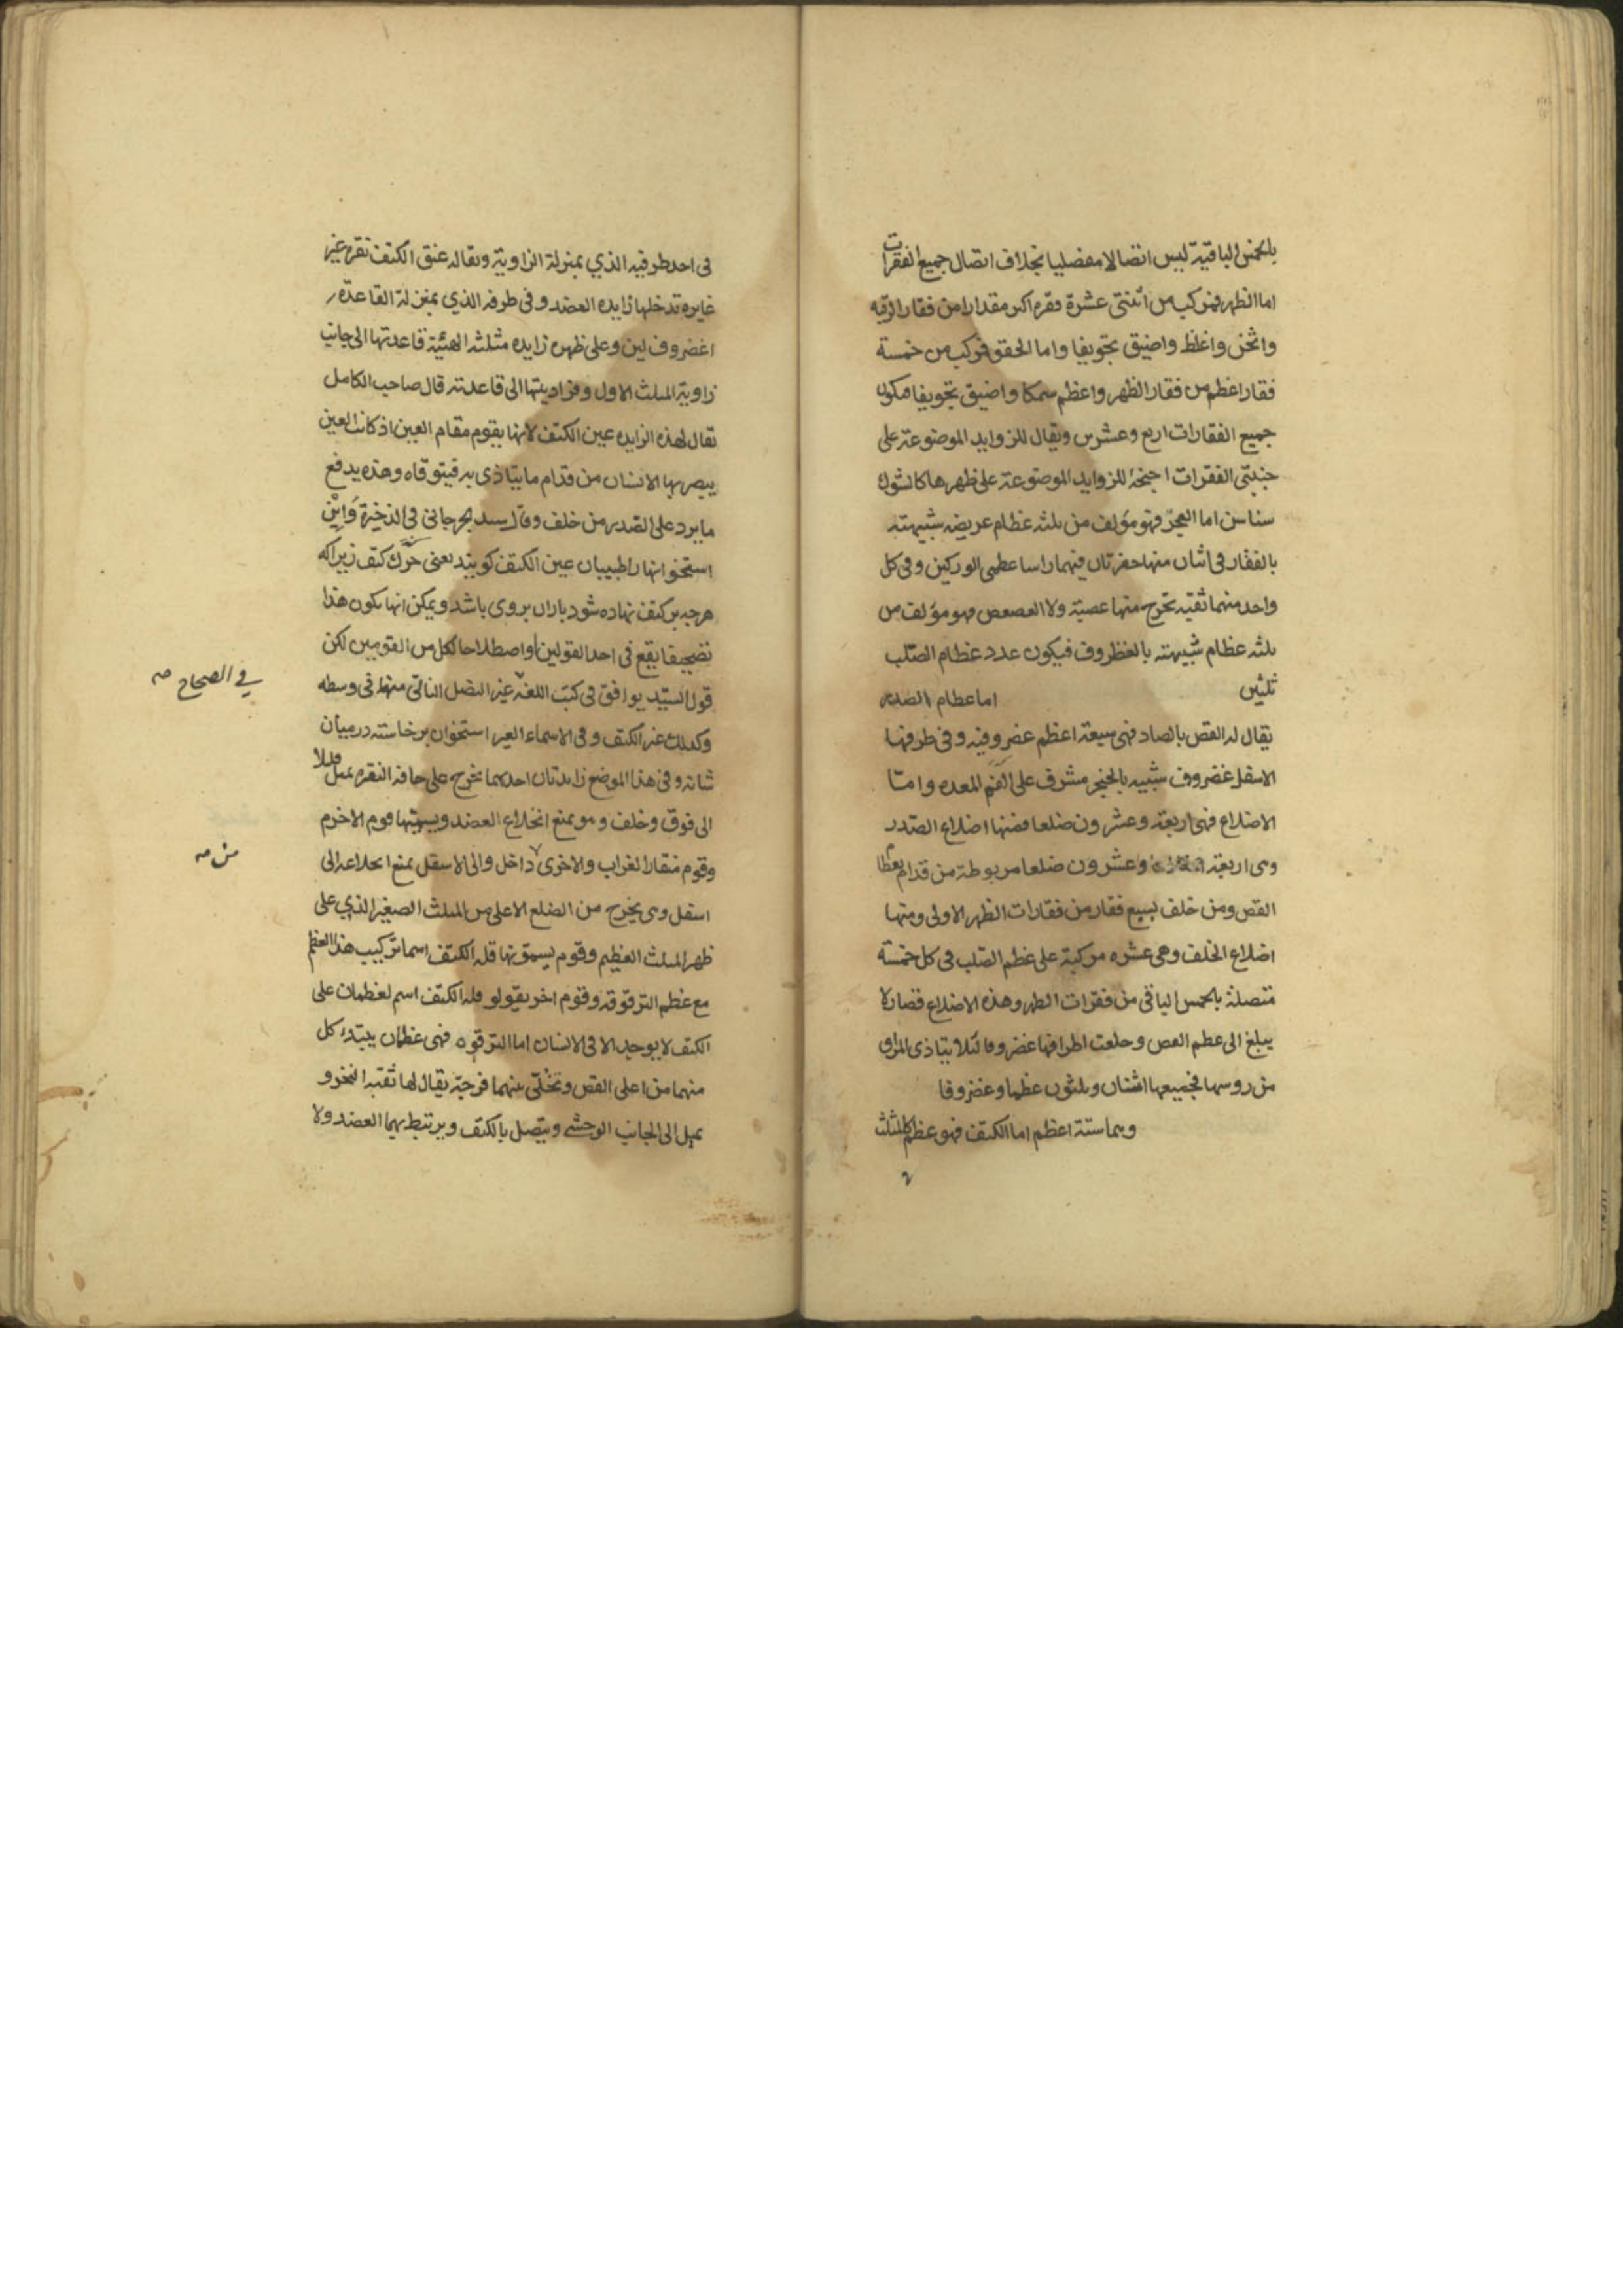 بالخمس الباقية ليس اتصالا مفصليا بخلاف اتصال جميع الفقرات
اما الظهر فمركب من اثنتى عشرة فقره اكبر مقدارا من فقار الرقبه
واثخن واغلظ واضيق تجويفا واما الحقو فركب من خمسة
فقار اعظم من فقار الظهر واعظم سمكا واضيق تجويفا فيكون
جميع الفقارات اربع وعشرين ويقال للزوايد الموضوعة على
جنبتى الفقرات اجنحة للزوايد الموضوعة على ظهرها كالشوك
سناسن اما العجز فهو مؤلف من ثلثه عظام عريضه شبيهته
بالفقار فى اثنان منها حفرتان فيهما راسا عظمى الوركين وفى كل
واحد منهما ثقبه تخرج منها عصبة ولا العصعص فهو مؤلف من
ثلثه عظام شبيهته بالغظروف فيكون عدد عظام الصلب
ثلثين اما عظام الصدر
يقال له القص بالصاد فهى سبعة اعظم غضروفيه وفى طرفها
الاسفل غضروف شبيه بالخنجر مشرف على الفم المعده وامّا
الاضلاع فهى اربعة وعشرون ضلعا فمنها اضلاع الصدر
وهى اربعة وعشرون ضلعا مربوطة من قدام بعظام
القص ومن خلف بسبع فقار من فقارات الظهر الاولى ومنها
اضلاع الخلف وهى عشره مركبة على عظم الصلب فى كل خمسة
متصلة بالخمس الباقى من فقرات الظهر وهذه الاضلاع قصار لا
يبلغ الى عظم القص وجعلت اطرافها غضروفا لئلا يتاذى المراق
من روسها فجميعها اثنان وثلثون عظما وغضروفا
وهما ستة اعظم اما الكتف فهو عظم كالمثلث
فى احد طرفيه الذي بمنزلة الزاوية ويقال له عنق الكتف نقره غير
غايره تدخلها زايده العضد وفى طرفه الذي بمنزلة القاعدة
غضروف لين وعلى ظهره زايده مثلثه الهيئة قاعدتها الى جانب
زاوية المثلث الاول وزاديتها الى قاعدته قال صاحب الكامل
يقال لهذه الزايده عين الكتف لانها يقوم مقام العين اذ كانت العين
يبصر بها الانسان من قدام ما يتاذى به فيتوقاه وهذه يدفع
ما يرد على الصدر من خلف وقال سيد جرجانى فى الذخيرة واين
استخوانها را طبيبان عين الكتف كويند يعنى خرك كتف زيراكه
هرچه بر كتف نهاده شود باران بروى باشد ويمكن انها يكون هذا
تصحيفا يقع فى احد القولين او اصطلاحا لكل من القومين لكن
قول السيد يوافق فى كتب اللغة عير النصل الناتى منها فى وسطه
وكذلك عير الكتف وفى الاسماء العير استخوان برخاسته درميان
شانه وفى هذا الموضع زايدتان احدهما يخرج على حافه النقره تميل قليلا
الى فوق وخلف وهو يمنع انخلاع العضد ويسميها قوم الاخرم
وقوم منقار الغراب والاخرى داخل والى الاسفل يمنع انخلاعه الى
اسفل وهى يخرج من الضلع الاعلى من المثلث الصغير الذي على
ظهر المثلث العظيم وقوم يسمونها قله الكتف اسما تركيب هذا العظم
مع عظم الترقوة وقوم اخر يقولو قله الكتف اسم لعظمان على
الكتف لا يوجد الا فى الانسان اما الترقوه فهى عظمان يبتدء كل
منهما من اعلى القص وتخلّى بينهما فرجة يقال لها ثقبه النحر و
يميل الى الجانب الوحشي ويتصل بالكتف ويرتبط بهما العضد ولا
في الصحاح صه
من صه